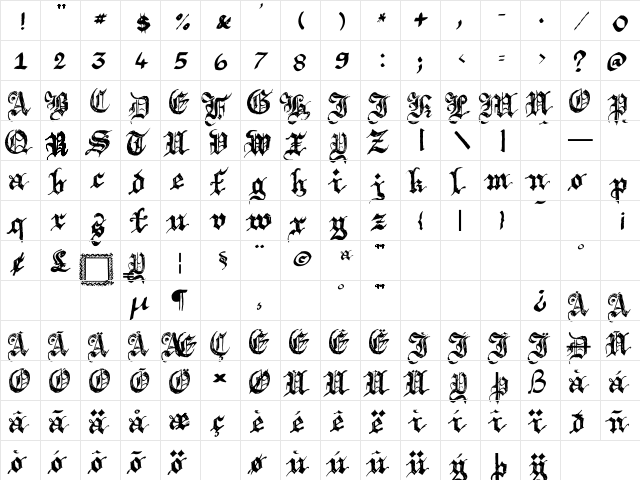 ! " # $ % & ' ( ) * + , - . / 0
1 2 3 4 5 6 7 8 9 : ; < = > ? @
A B C D E F G H I J K L M N O P
Q R S T U V W X Y Z [ \ ] —
a b c d e f g h i j k l m n o p
q r s t u v w x y z { | } ¡
¢ £ ¥ ¦ § ¨ © ª " °
µ ¶ ¸ º " ¿ À Á
Â Ã Ä Å Æ Ç È É Ê Ë Ì Í Î Ï Ð Ñ
Ò Ó Ô Õ Ö × Ø Ù Ú Û Ü Ý Þ ß à á
â ã ä å æ ç è é ê ë ì í î ï ð ñ
ò ó ô õ ö ø ù ú û ü ý þ ÿ